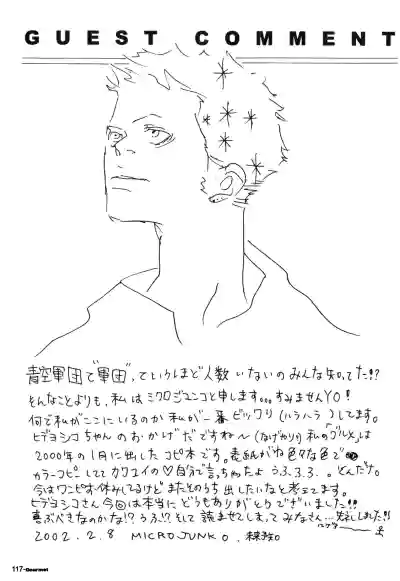 GUEST COMMENT
青空軍団で"軍団"っていうほど人数いないのみんな知ってた!?
そんなことよりも、私はミクロジュンコと申します。。。すみませんYO!
何で私がここにいるのか私が一番ビックリ(ハラハラ)してます。
ヒデヨシコちゃんのおかげだですね〜(なげやり)私の「グルメ」は
2000年の1月に出したコピ本です。表紙がね色々な色で
カラーコピーしててカワユイの♡自分で言っちゃったようふふ3.3.。どんだけ。
今はワンピはお休みしてるけどまたそのうち出したいなと考えてます。
ヒデヨシコさん今回は本当にどうもありがとうございました!!
喜ぶべきなのかな!?うふ!?そして読ませてしまってみなさん…失礼しました!!
2002.2.8 MICROJUNKO.
117-Gourmet